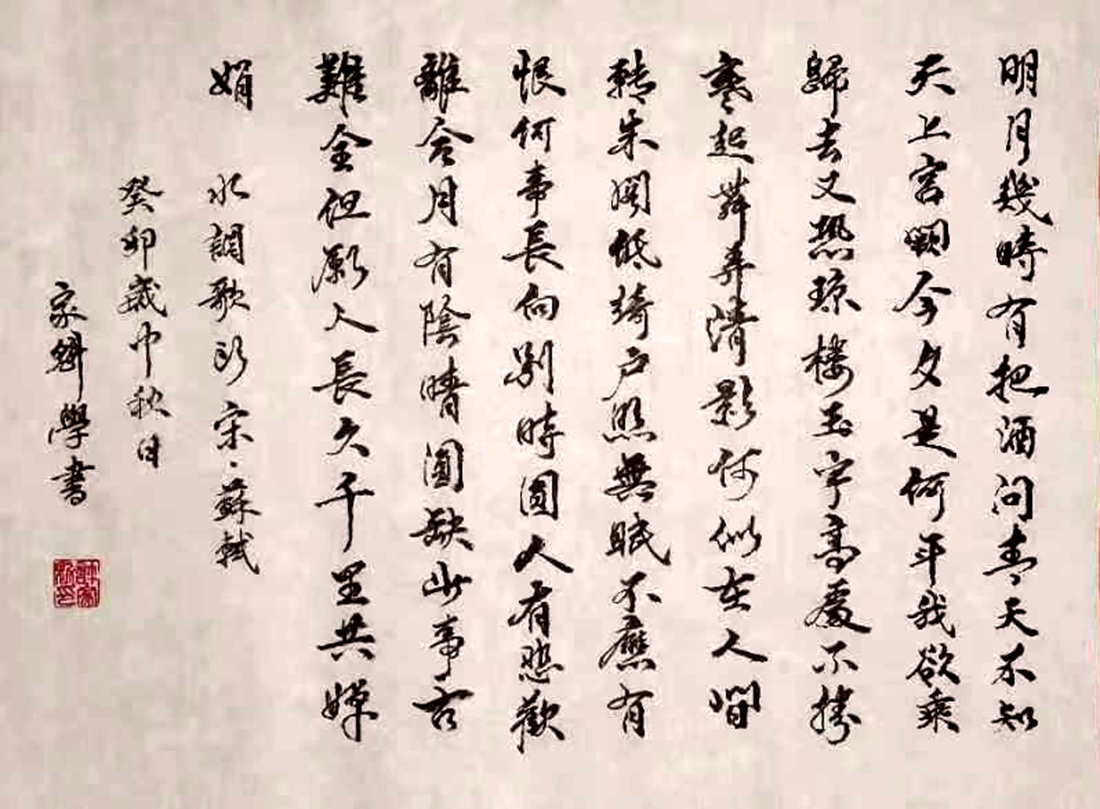 明月幾時有把酒問青天不知
天上宮闕今夕是何年我欲乘
歸去又恐琼楼玉宇高處不勝
寒起舞弄清影何似在人間
轉朱閣低綺户照無眠不應有
恨何事長向别時圓人有悲歡
離合月有陰晴圓缺此事古
難全但願人長久千里共嬋
娟 水調歌頭 宋·蘇軾
癸卯歲中秋日
家 學書